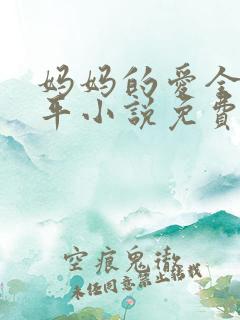 妈妈的愛全
平小說免費
空痕鬼徹
未经同意禁止转载